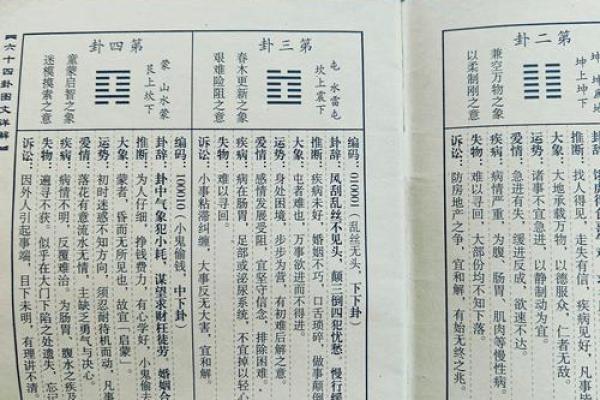 第二卦
坤
坤上坤下
兼空万物之象
以柔制刚之意
推断：找人得见，走失有信，疾病见
大象：大地承载万物，以德服众，仁者无敌。
运势：诸事不宜急进，以静制动为宜。
爱情：急进有失，缓进反成，欲速不达。
疾病：病情严重，为腹、肠胃、肌肉等慢性病。
失物：难以寻回，大部份均不知下落。
诉讼：防房地产之争，宜和解，有始无终之兆。
第三卦
屯 水雷屯
坎上震下
春木更新之象
艰难险阻之意
编码：010001（乱丝无头，下下卦）
卦辞：风刮乱丝不见头，颠三倒四犯忧愁，慢行缓
推断：疾病未好，婚姻不巧，口舌琐碎，做事颠倒
大象：屯者难也，万事欲进而不得进。
运势：身处困境，步步为营，有初难后解之意。
爱情：感情发展受阻，宜坚守信念，排除困难。
疾病：病在肠胃，足部或泌尿系统，不宜掉以轻心
失物：难以寻回。
诉讼：小事粘滞纠缠，大事反无大害，宜和解。
第四卦
蒙 山水蒙
艮上坎下
童蒙启智之象
迷模摸索之意
编码：100010（小鬼偷钱，中下卦）
卦辞：卦中气象犯小耗，谋望求财枉徒劳，婚姻合
推断：为人仔细，挣钱费力，有心学好，小鬼偷去
大象：蒙者，昏而无所见也，故宜「启蒙」。
运势：初时迷惑不知方向，须忍耐待机而动，凡事
爱情：落花有意流水无情，主缺乏勇气与决心。
疾病：病情不明，反覆难治，为肠胃、腹水之疾及
失物：遍寻不获。似乎在大门下陷之处遗失，忘记
诉讼：因外人引起事端，目下未明，有理讲不清。
【六十四卦图文详解】